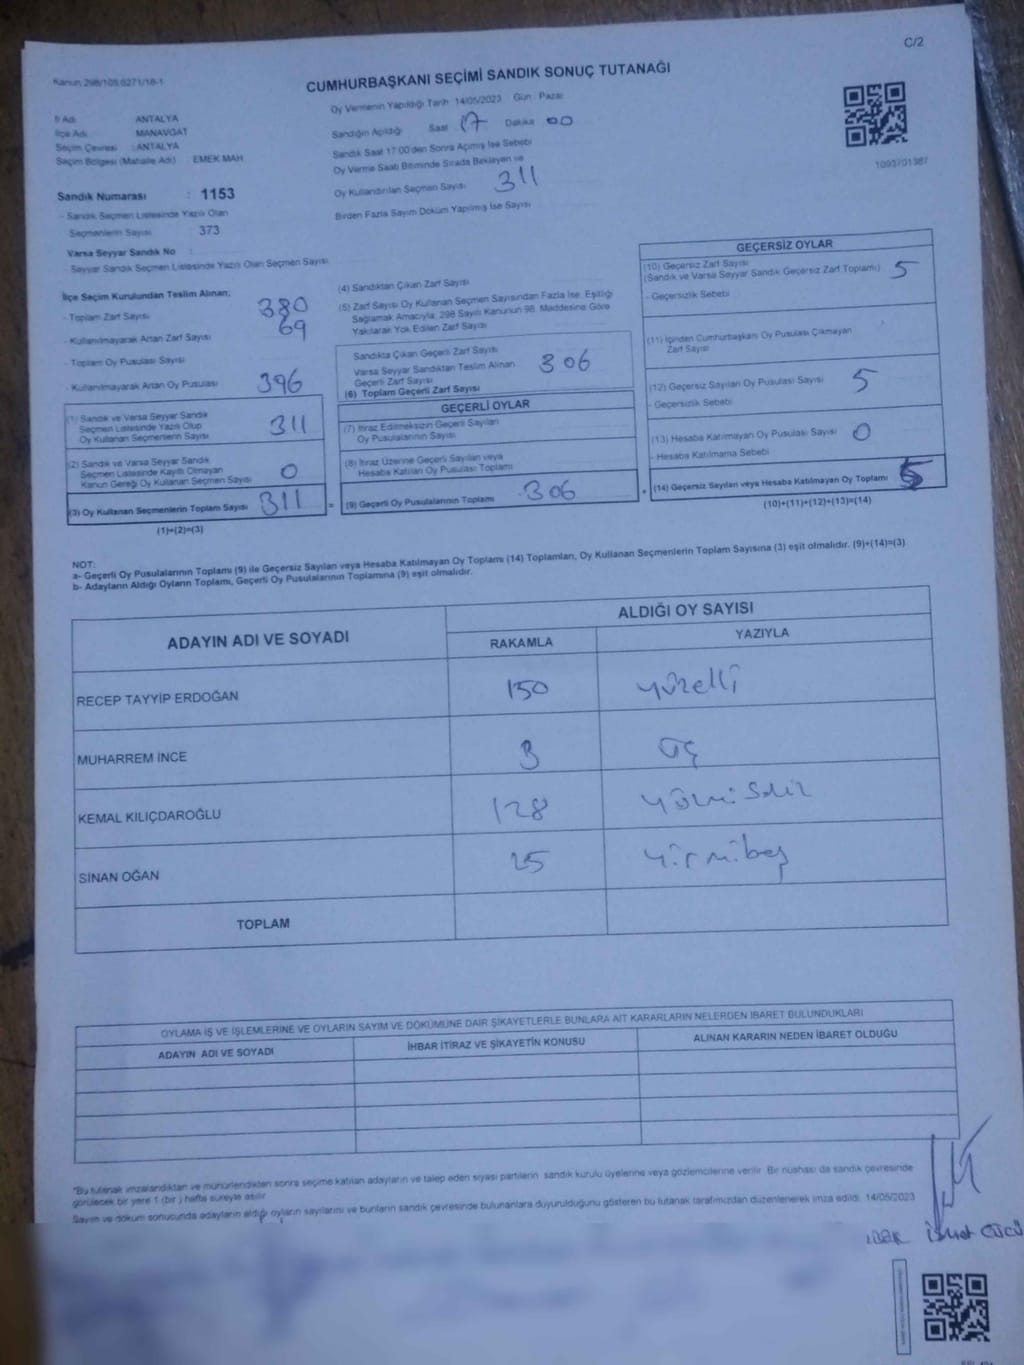 C/2
Kanun 298/105,6271/18-1
CUMHURBAŞKANI SEÇİMİ SANDIK SONUÇ TUTANAĞI
İl Adı ANTALYA
İlçe Adı MANAVGAT
Seçim Çevresi : ANTALYA
Seçim Bölgesi (Mahalle Adı) EMEK MAH
Oy Vermenin Yapıldığı Tarih 14/05/2023 Gün : Pazar
Sandığın Açıldığı Saat 17 Dakika 00
Sandık Saat 17:00'den Sonra Açılmış İse Sebebi
Oy Verme Saati Bitiminde Sırada Bekleyen ve
Oy Kullandırılan Seçmen Sayısı 311
Birden Fazla Sayım Döküm Yapılmış İse Sayısı
1093701387
Sandık Numarası : 1153
- Sandık Seçmen Listesinde Yazılı Olan
Seçmenlerin Sayısı 373
Varsa Seyyar Sandık No :
- Seyyar Sandık Seçmen Listesinde Yazılı Olan Seçmen Sayısı
İlçe Seçim Kurulundan Teslim Alınan;
- Toplam Zarf Sayısı 380
- Kullanılmayarak Artan Zarf Sayısı 69
- Toplam Oy Pusulası Sayısı
- Kullanılmayarak Artan Oy Pusulası 396
(1) Sandık ve Varsa Seyyar Sandık
Seçmen Listesinde Yazılı Olup
Oy Kullanan Seçmenlerin Sayısı 311
(2) Sandık ve Varsa Seyyar Sandık
Seçmen Listesinde Kayıtlı Olmayan
Kanun Gereği Oy Kullanan Seçmen Sayısı 0
(3) Oy Kullanan Seçmenlerin Toplam Sayısı 311
(1)+(2)=(3)
(4) Sandıktan Çıkan Zarf Sayısı
(5) Zarf Sayısı Oy Kullanan Seçmen Sayısından Fazla İse, Eşitliği
Sağlamak Amacıyla; 298 Sayılı Kanunun 98. Maddesine Göre
Yakılarak Yok Edilen Zarf Sayısı
Sandıkta Çıkan Geçerli Zarf Sayısı
Varsa Seyyar Sandıktan Teslim Alınan
Geçerli Zarf Sayısı
(6) Toplam Geçerli Zarf Sayısı 306
GEÇERLİ OYLAR
(7) İtiraz Edilmeksizin Geçerli Sayılan
Oy Pusulalarının Sayısı
(8) İtiraz Üzerine Geçerli Sayılan veya
Hesaba Katılan Oy Pusulası Toplamı
= (9) Geçerli Oy Pusulalarının Toplamı 306
GEÇERSİZ OYLAR
(10) Geçersiz Zarf Sayısı
(Sandık ve Varsa Seyyar Sandık Geçersiz Zarf Toplamı) 5
- Geçersizlik Sebebi
(11) İçinden Cumhurbaşkanı Oy Pusulası Çıkmayan
Zarf Sayısı
(12) Geçersiz Sayılan Oy Pusulası Sayısı 5
- Geçersizlik Sebebi
(13) Hesaba Katılmayan Oy Pusulası Sayısı 0
- Hesaba Katılmama Sebebi
+ (14) Geçersiz Sayılan veya Hesaba Katılmayan Oy Toplamı 5
(10)+(11)+(12)+(13)=(14)
NOT:
a- Geçerli Oy Pusulalarının Toplamı (9) ile Geçersiz Sayılan veya Hesaba Katılmayan Oy Toplamı (14) Toplamları, Oy Kullanan Seçmenlerin Toplam Sayısına (3) eşit olmalıdır. (9)+(14)=(3)
b- Adayların Aldığı Oyların Toplamı, Geçerli Oy Pusulalarının Toplamına (9) eşit olmalıdır.
ADAYIN ADI VE SOYADI
ALDIĞI OY SAYISI
RAKAMLA YAZIYLA
RECEP TAYYİP ERDOĞAN 150 yüzelli
MUHARREM İNCE 3 üç
KEMAL KILIÇDAROĞLU 128
SİNAN OĞAN 25 yirmibeş
TOPLAM
OYLAMA İŞ VE İŞLEMLERİNE VE OYLARIN SAYIM VE DÖKÜMÜNE DAİR ŞİKAYETLERLE BUNLARA AİT KARARLARIN NELERDEN İBARET BULUNDUKLARI
ADAYIN ADI VE SOYADI İHBAR İTİRAZ VE ŞİKAYETİN KONUSU ALINAN KARARIN NEDEN İBARET OLDUĞU
*Bu tutanak imzalandıktan ve mühürlendikten sonra seçime katılan adayların ve talep eden siyasi partilerin sandık kurulu üyelerine veya gözlemcilerine verilir. Bir nüshası da sandık çevresinde
görülecek bir yere 1 (bir ) hafta süreyle asılır.
Sayım ve döküm sonucunda adayların aldığı oyların sayılarını ve bunların sandık çevresinde bulunanlara duyurulduğunu gösteren bu tutanak tarafımızdan düzenlenerek imza edildi. 14/05/2023